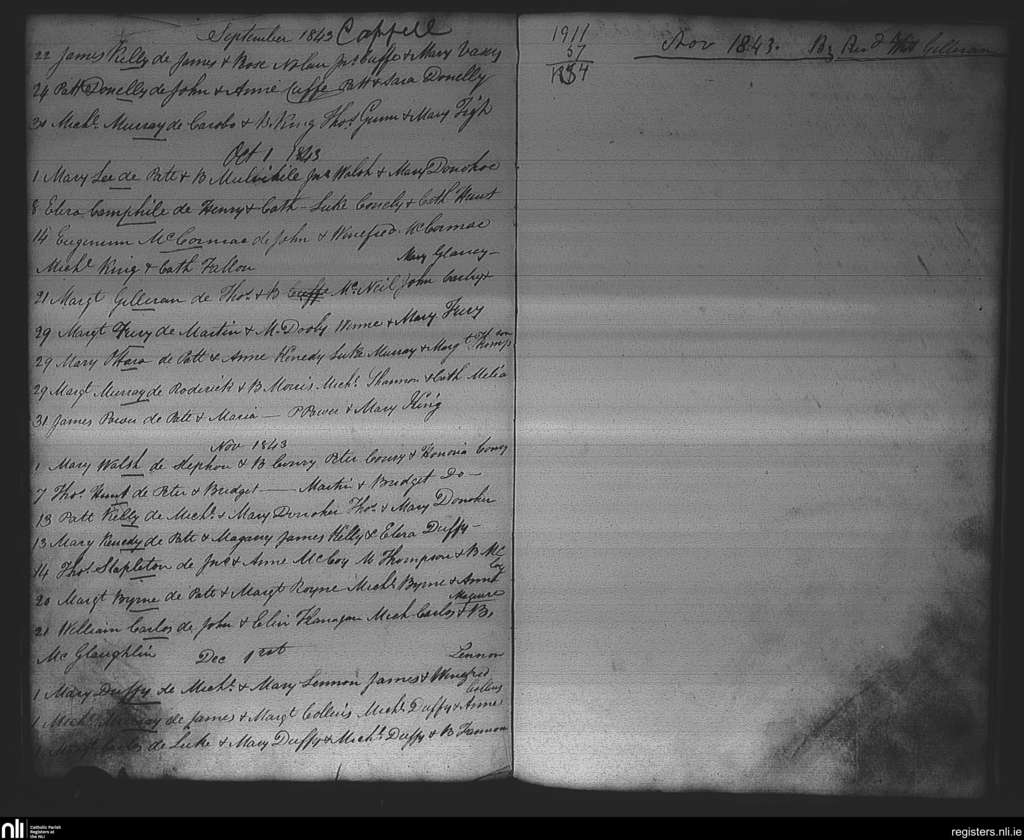 September 1843 Cappell
22 James Kelly de James & Rose Nolan Jas Cuffe & Mary Vaxey
24 Patt Donelly de John & Anne Cuffe Patt & Sara Donelly
30 Michl. Murray de Carobo & B. King Thos. Gunn & Mary Tigh
Oct 1 1843
1 Mary Lee de Patt & B Mulvihile Jno Walsh & Mary Donohoe
8 Elera Camphile de Henry & Cath - Luke Conely & Cath Hunt
14 Eugenium McCormac de John & Winefred McCormac
Michl King & Cath Fallon
Mary Glancy -
21 Margt Gilleran de Thos. & B Cuffe McNeil John Carley &
29 Margt Fury de Martin & M. Dooly Winne & Mary Fury
29 Mary OHara de Patt & Anne Kenedy Luke Murray & Margt Thompson
29 Margt Murray de Roderick & B Morris Michl Shannon & Cath Melia
31 James Power de Patt & Maria - P Power & Mary King
Nov 1843
1 Mary Walsh de Stephen & B Conry Peter Conry & Honoria Conry
7 Thos Hunt de Peter & Bridget - Martin & Bridget Do -
13 Patt Kelly de Michl. & Mary Donoher Thos & Mary Donoher
13 Mary Kenedy de Patt & Magany James Kelly & Elera Duffy -
14 Thos Stapleton de Jno & Anne McCoy M Thompson & B McCoy
20 Margt Byrne de Patt & Margt Royne Michl Byrne & Anne
Maguire
21 William Carlos de John & Elein Flanagan Mich Carlos & B.
McGlaughlin
Dec 1rst
Lennon
1 Mary Duffy de Michl. & Mary Lennon James & Winefred
Collins
1 Michl Murray de James & Margt Collins Michl Duffy & Anne
1 Margt Carlos de Luke & Mary Duffy & Michl Duffy & B Fannon
1911
57
1854
Nov 1843. By Revd Thos Gilleran
nli
Catholic Parish
Registers at
the NLI
registers.nli.ie